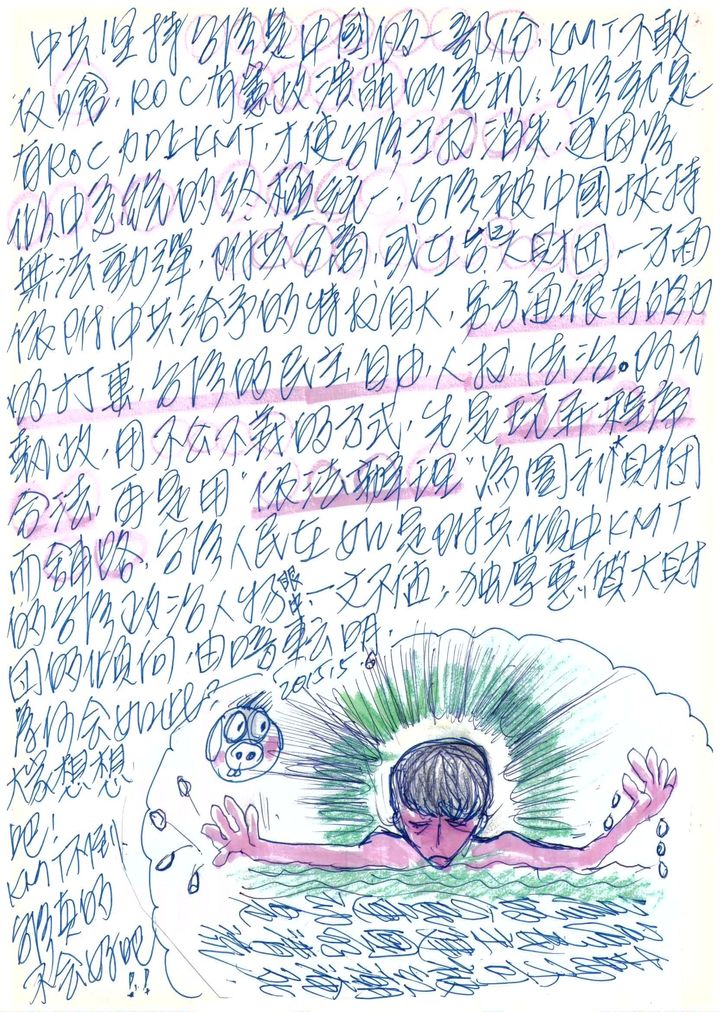 中共坚持台湾是中國的一部份,KMT不敢
反嗆,ROC有憲政潰崩的危机,台湾就是
有ROC加上KMT,才使台湾主权消失,更因為
倾中急統的终極統一,台湾被中國挾持
無法動彈,附共台商,或在台大財团,一方面
依附中共给予的特权自大,另方面很有能力
的打壓,台湾的民主、自由、人权、法治。阿九
執政,用不公不義的方式,先是玩弄程序
合法,再是用"依法辦理"為圖利財团
而鋪路,台湾人民在如是附共倾中KMT
的台湾政治人物眼中,一文不值,独厚惠
大財
团的倾向
2015.5.6
為何会如此?
大家想想
吧!
KMT不倒
台湾真的
不会好吧!!